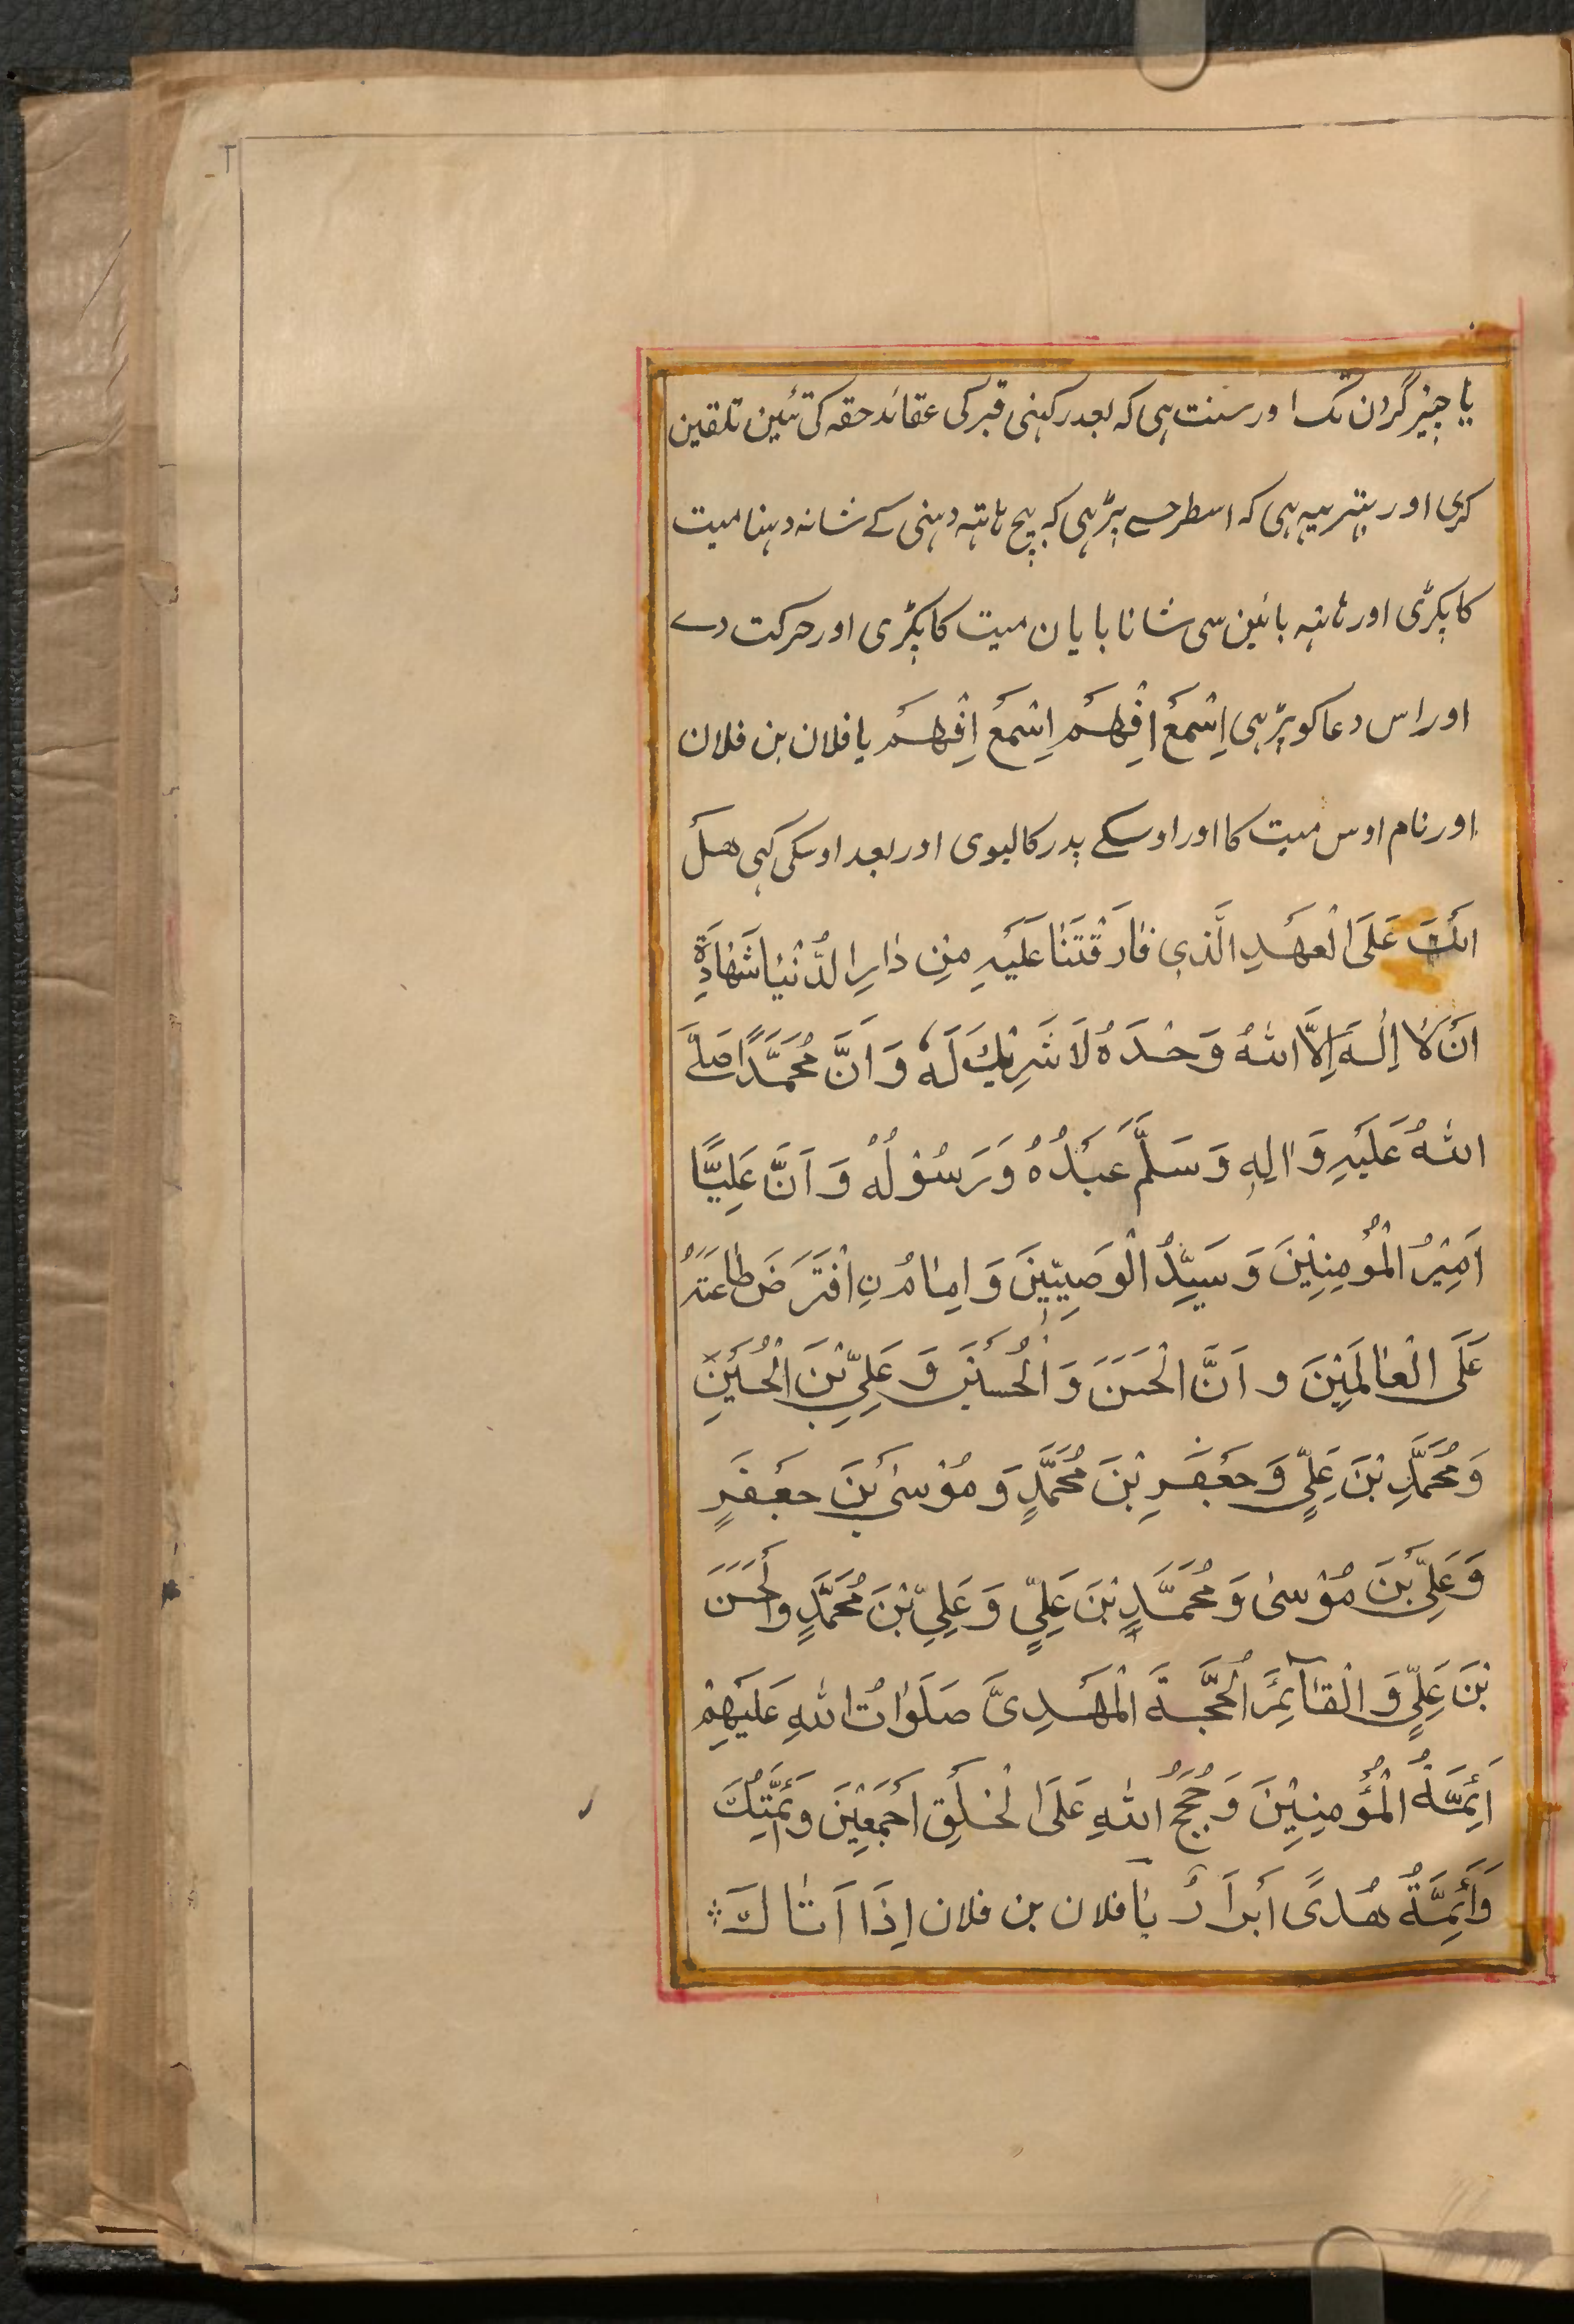 یا چنبر گردن تک اور سنت ہی کہ بعد رکہنی قبر کی عقائد حقہ کی تئین تلقین
کری اور بہتر یہہ ہی کہ اسطرحسے پڑہی کہ بیچ ہاتہہ دہنی کے شانہ دہنا میت
کا پکڑی اور ہاتہہ بائین سی شانا بایان میت کا پکڑی اور حرکت دے
اور اس دعا کو پڑہی اِسْمَعْ اِفْهَمْ اِسْمَعْ اِفْهَمْ یا فلان بن فلان
اور نام اوس میت کا اور اوسکے پدر کا لیوی اور بعد اوسکی کہی هَلْ
اَنْتَ عَلَى الْعَهْدِ الَّذِي فَارَقْتَنَا عَلَيْهِ مِنْ دَارِ الدُّنْيَا شَهَادَةِ
اَنْ لَا اِلٰهَ اِلَّا اللهُ وَحْدَهُ لَا شَرِيْكَ لَهٗ وَ اَنَّ مُحَمَّدًا صَلَّى
اللهُ عَلَيْهِ وَ اٰلِهٖ وَ سَلَّمَ عَبْدُهُ وَ رَسُوْلُهُ وَ اَنَّ عَلِيًّا
اَمِيْرُ الْمُؤْمِنِيْنَ وَ سَيِّدُ الْوَصِيِّيْنَ وَ اِمَامُ نِ افْتَرَضَ طَاعَتَهُ
عَلَى الْعَالَمِيْنَ و اَنَّ الْحَسَنَ وَ الْحُسَيْنَ وَ عَلِيِّ بْنَ الْحُسَيْنِ
وَ مُحَمَّدِ بْنَ عَلِيٍّ وَ جَعْفَرِ بْنَ مُحَمَّدٍ وَ مُوْسٰى بْنَ جَعْفَرٍ
وَ عَلِيِّ بْنَ مُوْسٰى وَ مُحَمَّدِ بْنَ عَلِيٍّ وَ عَلِيِّ بْنَ مُحَمَّدٍ وَ الْحَسَنَ
بْنَ عَلِيٍّ وَ الْقَآئِمَ الْحُجَّةَ الْمَهْدِىَّ صَلَوَاتُ اللهِ عَلَيْهِمْ
اَئِمَّةُ الْمُؤْمِنِيْنَ وَ حُجَجُ اللهِ عَلَى الْخَلْقِ اَجْمَعِيْنَ وَ ئِمَّتُكَ
وَ اَئِمَّةُ هُدًى اَبْرَارُ يَا فلان بن فلان اِذَا اَتَاكَ